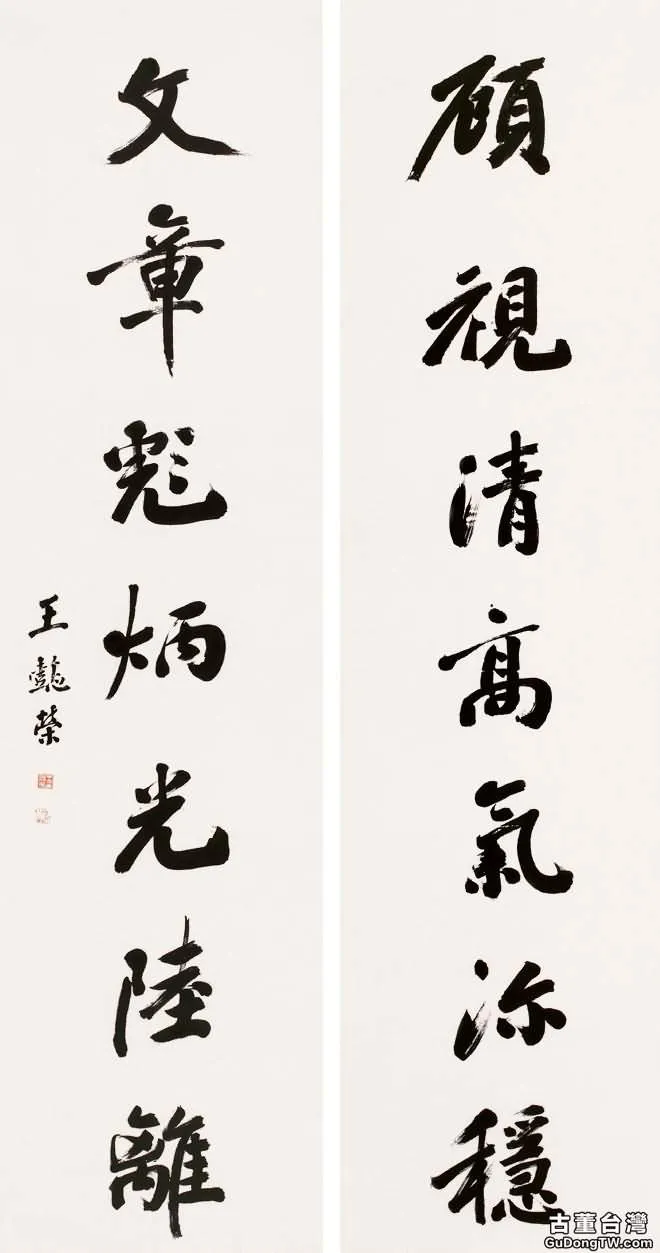 顧視清高氣深穩
文章彪炳光陸離
王懿榮
古董台灣
GuDongTW.com